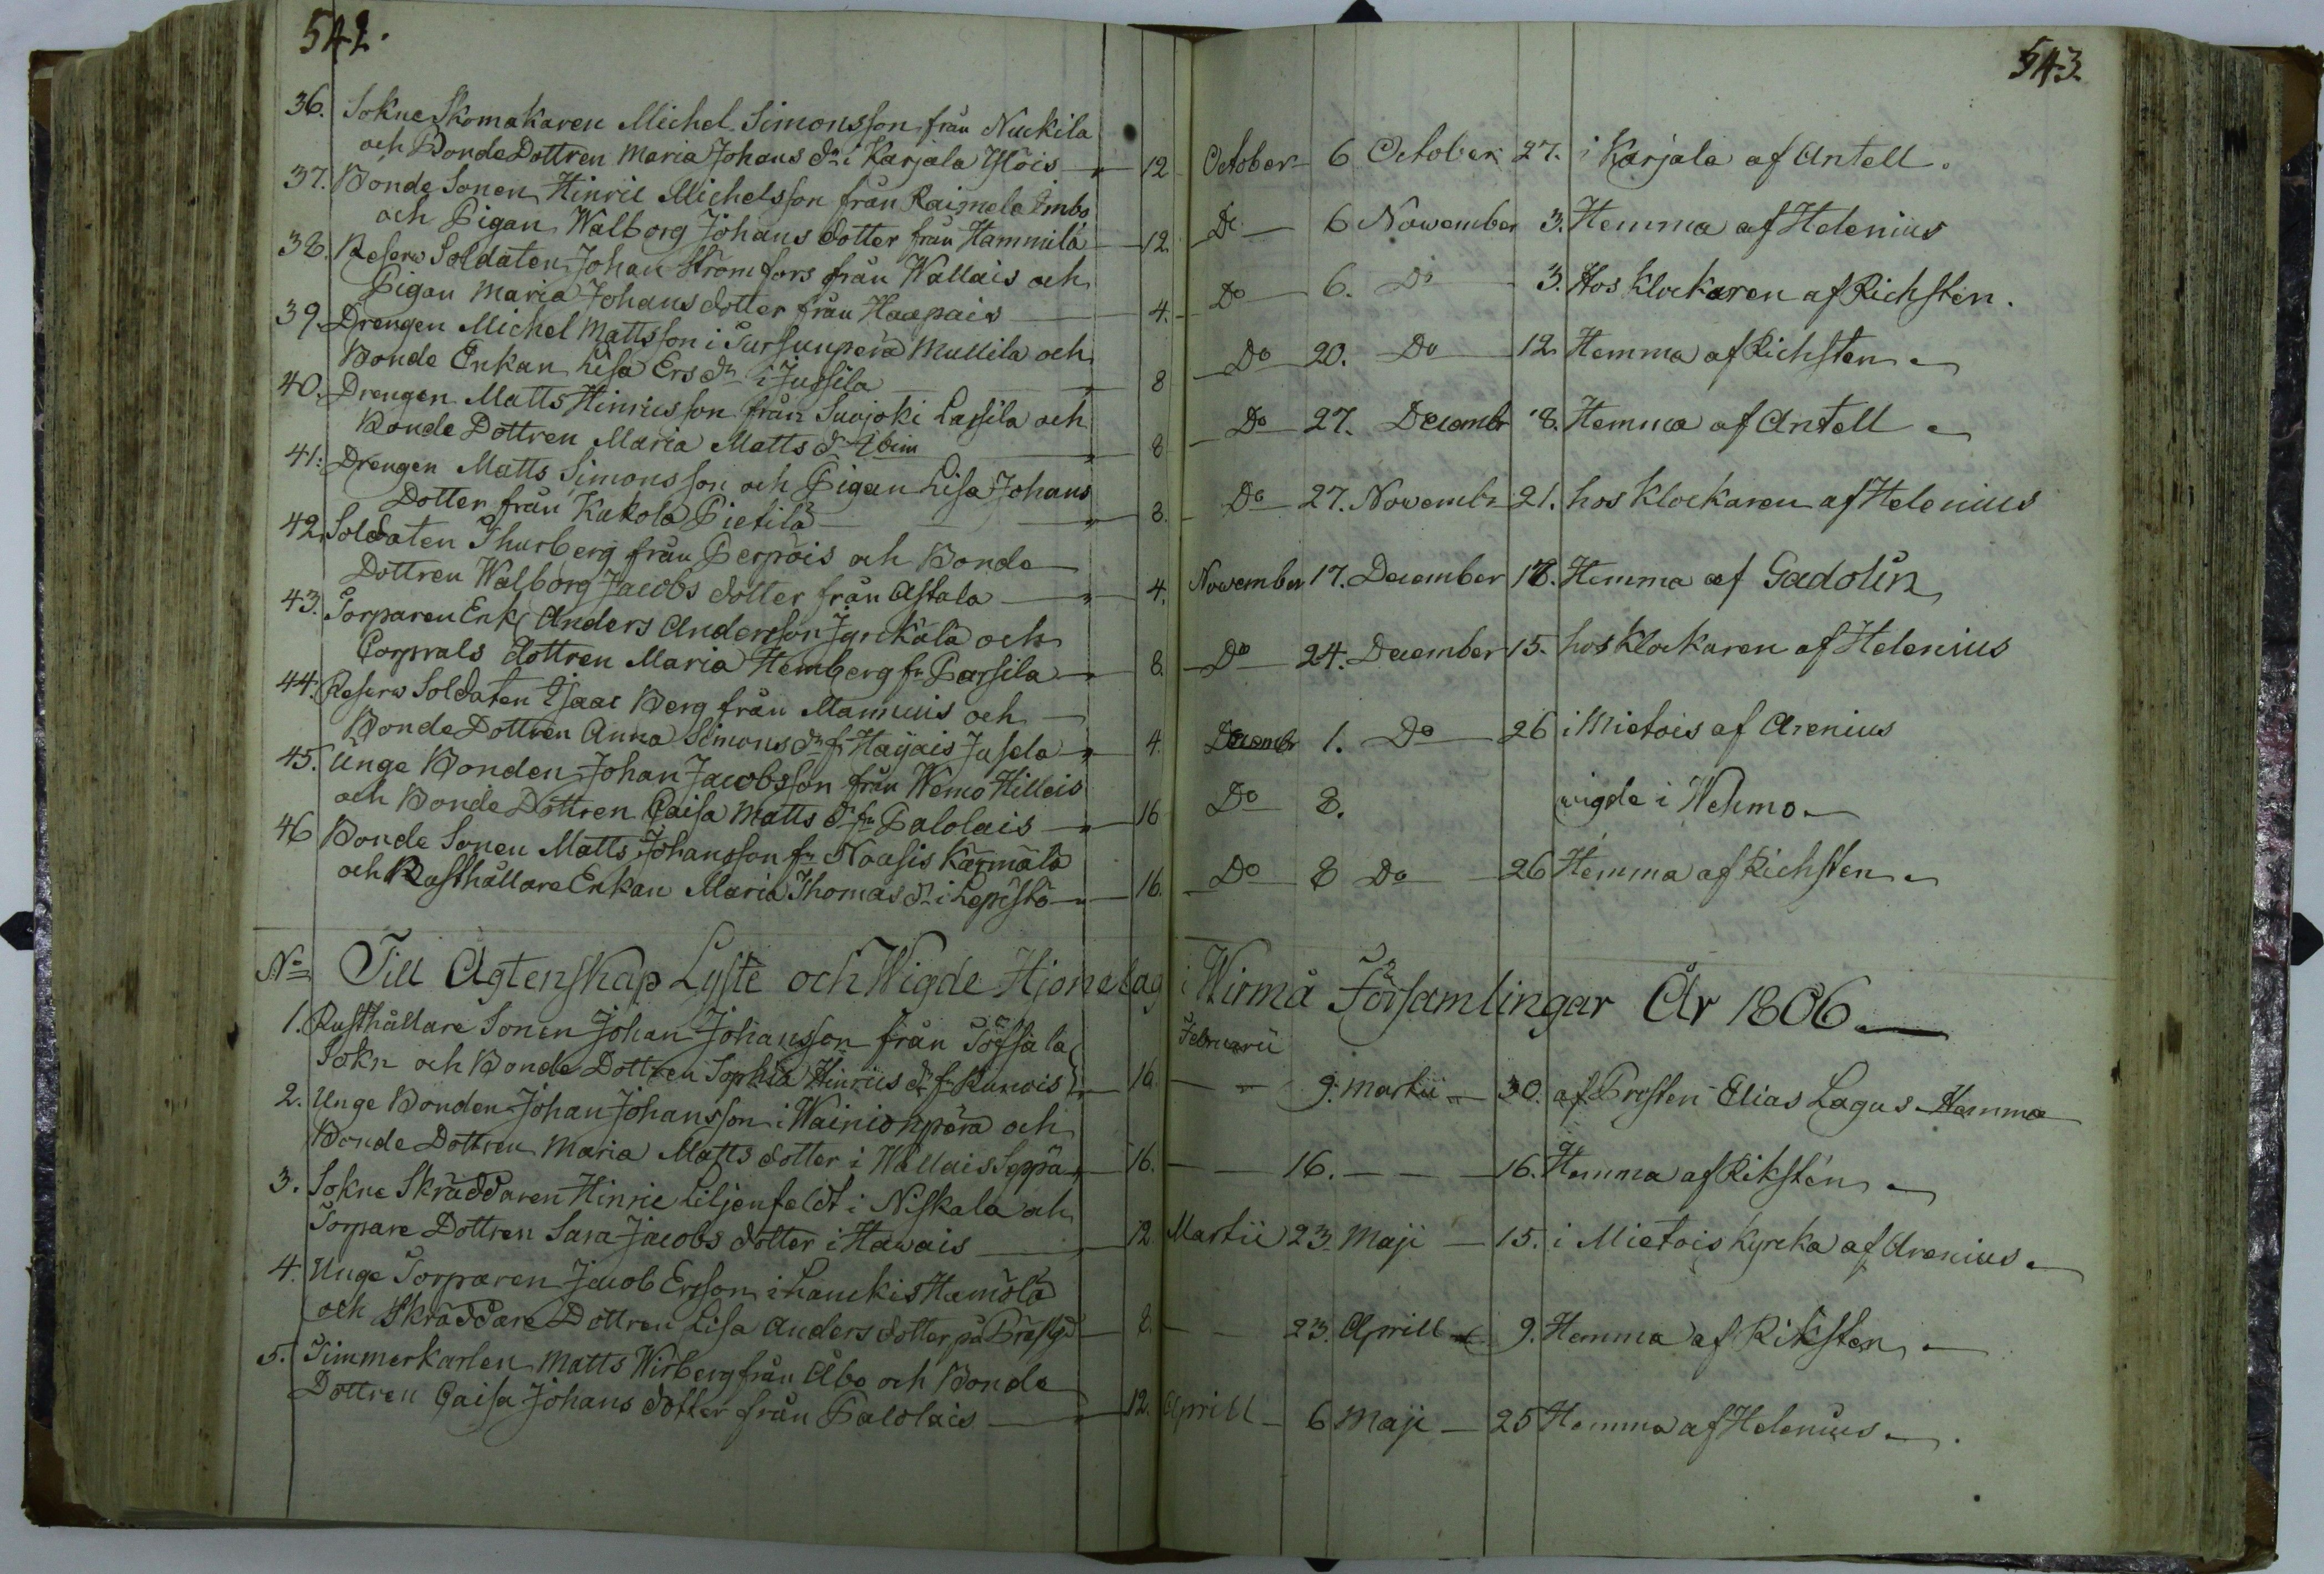 542.
36. Sokne Skomakaren Michel Simonsson från Nuckila
och Bonde Dottren Maria Johans dr i Karjala Yföis — 12
37. Bonde Sonen Hinric Michelsson från Raimela Simbo
och Pigan Walborg Johans dotter från Hammila — 12
38. Reserv Soldaten Johan Strömfors från Wallais och
Pigan Maria Johans dotter från Haapais — 4.
39. Drengen Michel Mattsson i Tursunperä Mullila och
Bonde Enkan Lisa Ers dr i Jussila — 8
40. Drengen Matts Hinricsson från Suojoki Lassila och
Bonde Dottren Maria Matts dr Ibim — 8
41. Drengen Matts Simonsson och Pigan Lisa Johans
Dotter från Kukola Pietilä — 8.
42. Soldaten Thurberg från Perpöis och Bonde
Dottren Walborg Jacobs dotter från Astala — 4.
43. Torparen Enkl Anders Andersson Jyrckälä och
Corprals dottren Maria Hemberg fr Parsila — 8.
44. Reserv Soldaten Isaac Berg från Mannuis och
Bonde Dottren Anna Simons dr fr Hayais Jusela — 4.
45. Unge Bonden Johan Jacobsson från Wemo Hilleis
och Bonde Dottren Caisa Matts dr fr Palolais — 16
46 Bonde Sonen Matts Johansson fr Noasis Kärmälä
och Rusthållare Enkan Maria Thomas dr i Lepistö — 16.
No Till Ägtenskap Lyste och Wigde Hjonelag
1. Rusthållare Sonen Johan Johansson från Töfsala
Sokn och Bonde Dottren Sophia Hinrics dr fr Runois — 16.
2. Unge Bonden Johan Johansson i Wainionperä och
Bonde Dottren Maria Matts dotter i Wallais Seppä — 16.
3. Sokne Skräddaren Hinric Liljenfeldt i Niskala och
Torpare Dottren Sara Jacobs dotter i Hawais — 12
4. Unge Torparen Jacob Ersson i Lauckis Hamölä
och Skräddare Dottren Lisa Anders dotter på Prästgd — 8.
5. Timmerkarlen Matts Wirberg från Åbo och Bonde
Dottren Caisa Johans dotter från Palolais — 12.
543.
October — 6 October 27. i Karjala af Antell.
Do — 6 November 3. Hemma af Helenius
Do — 6. Do 3. Hos Klockaren af Richstén.
Do — 20. Do — 12. Hemma af Richsten
Do — 27. Decembr 8. Hemma af Antell
Do — 27. Novembr 21. hos Klockaren af Helenius
November 17. December 18. Hemma af Gadolin
Do — 24. December 15. hos Klockaren af Helenius
Decembr 1. Do — 26 i Mietois af Arenius
Do 8. wigde i Wehmo —
Do — 8 Do — 26 Hemma af Richsten
i Wirmå Församlingar År 1806. —
Februarii
— 9. Martii — 30. af Presten Elias Lagus Hemma
— — 16. — — 16. Hemma af Rikstén
Martii 23. Maji — 15. i Mietois Kyrcka af Arenius
— — 23. Aprill 9. Hemma af Riksten —
Aprill — 6 Maji — 25 Hemma af Helenius